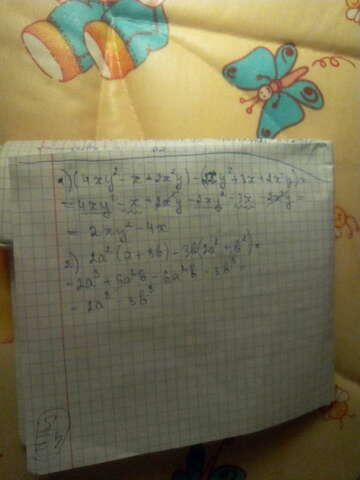 1) (4xy² - x + 2x²y) - (2xy² + 3x + 2x²y) =
= 4xy² - x + 2x²y - 2xy² - 3x - 2x²y =
= 2xy² - 4x
2) 2a²(a + 3b) - 3b(2a² + b²) =
= 2a³ + 6a²b - 6a²b - 3b³ =
= 2a³ - 3b³